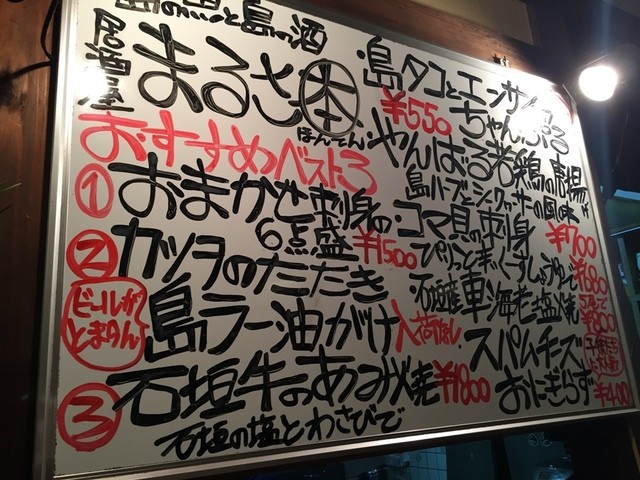 島の魚と島の酒
居酒屋
まるさ 本
ほんてん
おすすめベスト3
① おまかせ刺身の
6点盛 ¥1500
② カツオのたたき
ビールが
とまらん
島ラー油がけ 入荷なし
③ 石垣牛のあみ焼 ¥1800
石垣の塩とわさびで
・島タコとエンサイの
¥550 ちゃんぷる
・やんばる若鶏の唐揚
島ハーブとシークヮサーの風味 ¥700
・コマ貝の刺身
ぴりっと ¥680
・石垣産車海老塩焼
5尾で
¥800
・スパムチーズ
おにぎらず ¥400